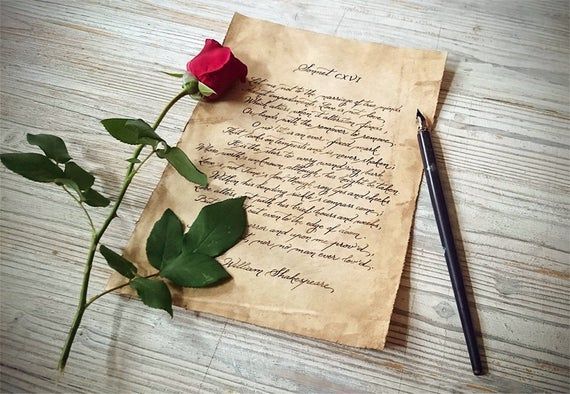 Sonnet CXVI
me not to the marriage of true minds
impediments. Love is not love
Which alters when it alteration finds,
Or bends with the remover to remove
O no! it is an ever-fixed mark,
That looks on tempests and is never shaken;
It is the star to every wandering bark,
Whose worth's unknown, although his height be taken
not Time's fool, though rosy lips and cheeks
Within his bending sickle's compass come;
with his brief hours and weeks,
But even to the edge of doom.
error and upon me prov'd,
nor no man ever lov'd.
William Shakespeare,